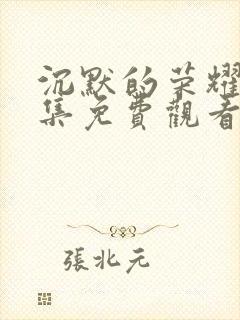 沉默的荣耀
集免費觀看
張北元